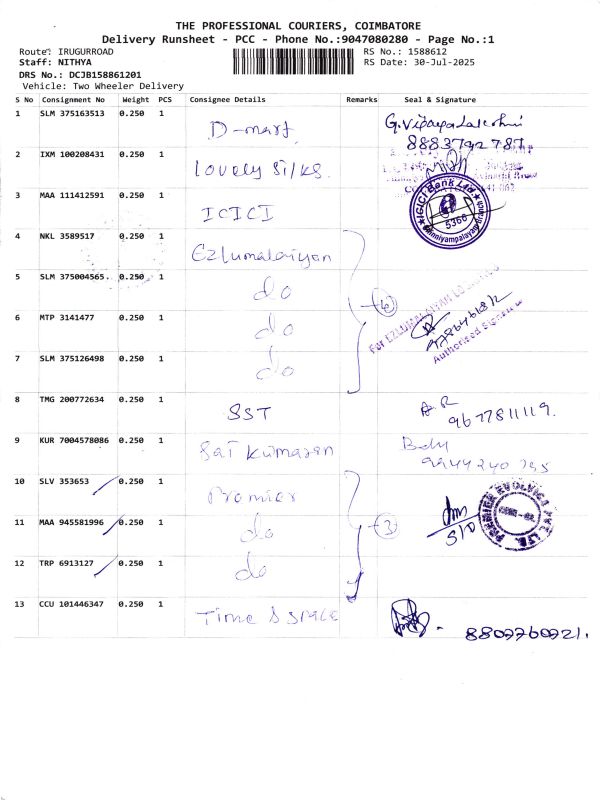 THE PROFESSIONAL COURIERS, COIMBATORE
Delivery Runsheet - PCC - Phone No.:9047080280 - Page No.:1
Route: IRUGURROAD
RS No.: 1588612
Staff: NITHYA
RS Date: 30-Jul-2025
DRS No.: DCJB158861201
Vehicle: Two Wheeler Delivery
S No Consignment No Weight PCS Consignee Details Remarks Seal & Signature
1 SLM 375163513 0.250 1 D-mart G.Vijayalakshmi
8883792787
2 IXM 100208431 0.250 1 Lovely Silks
3 MAA 111412591 0.250 1 ICICI ICICI Bank Ltd. 5366
4 NKL 3589517 0.250 1 Ezlumalaiyan
5 SLM 375004565 0.250 1 do
6 MTP 3141477 0.250 1 do
For EZLUMALAIYAN
Authorised Signature
7 SLM 375126498 0.250 1 do
8 TMG 200772634 0.250 1 SST A.R
9677811119.
9 KUR 7004578086 0.250 1 Sai Kumaran
9944240795
10 SLV 353653 0.250 1 Premier
11 MAA 945581996 0.250 1 do 3 PREMIER EVOLVICS PVT LTD.
12 TRP 6913127 0.250 1 do
13 CCU 101446347 0.250 1 Time & Space
8807760921.